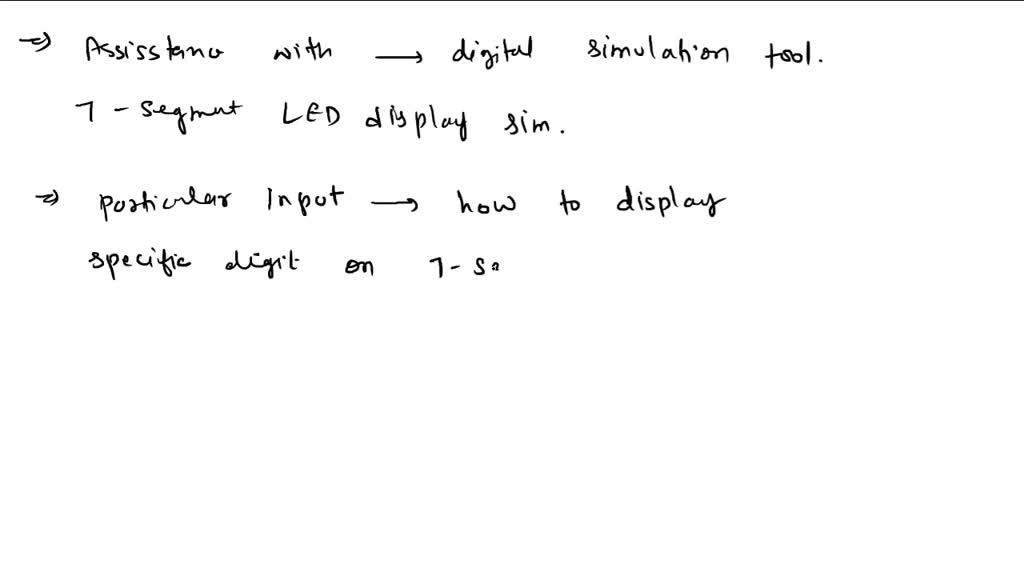 ⇒ Assisstance with → digital simulation tool.
7 - segment LED display sim.
⇒ particular Input → how to display
specific digit on 7 - se